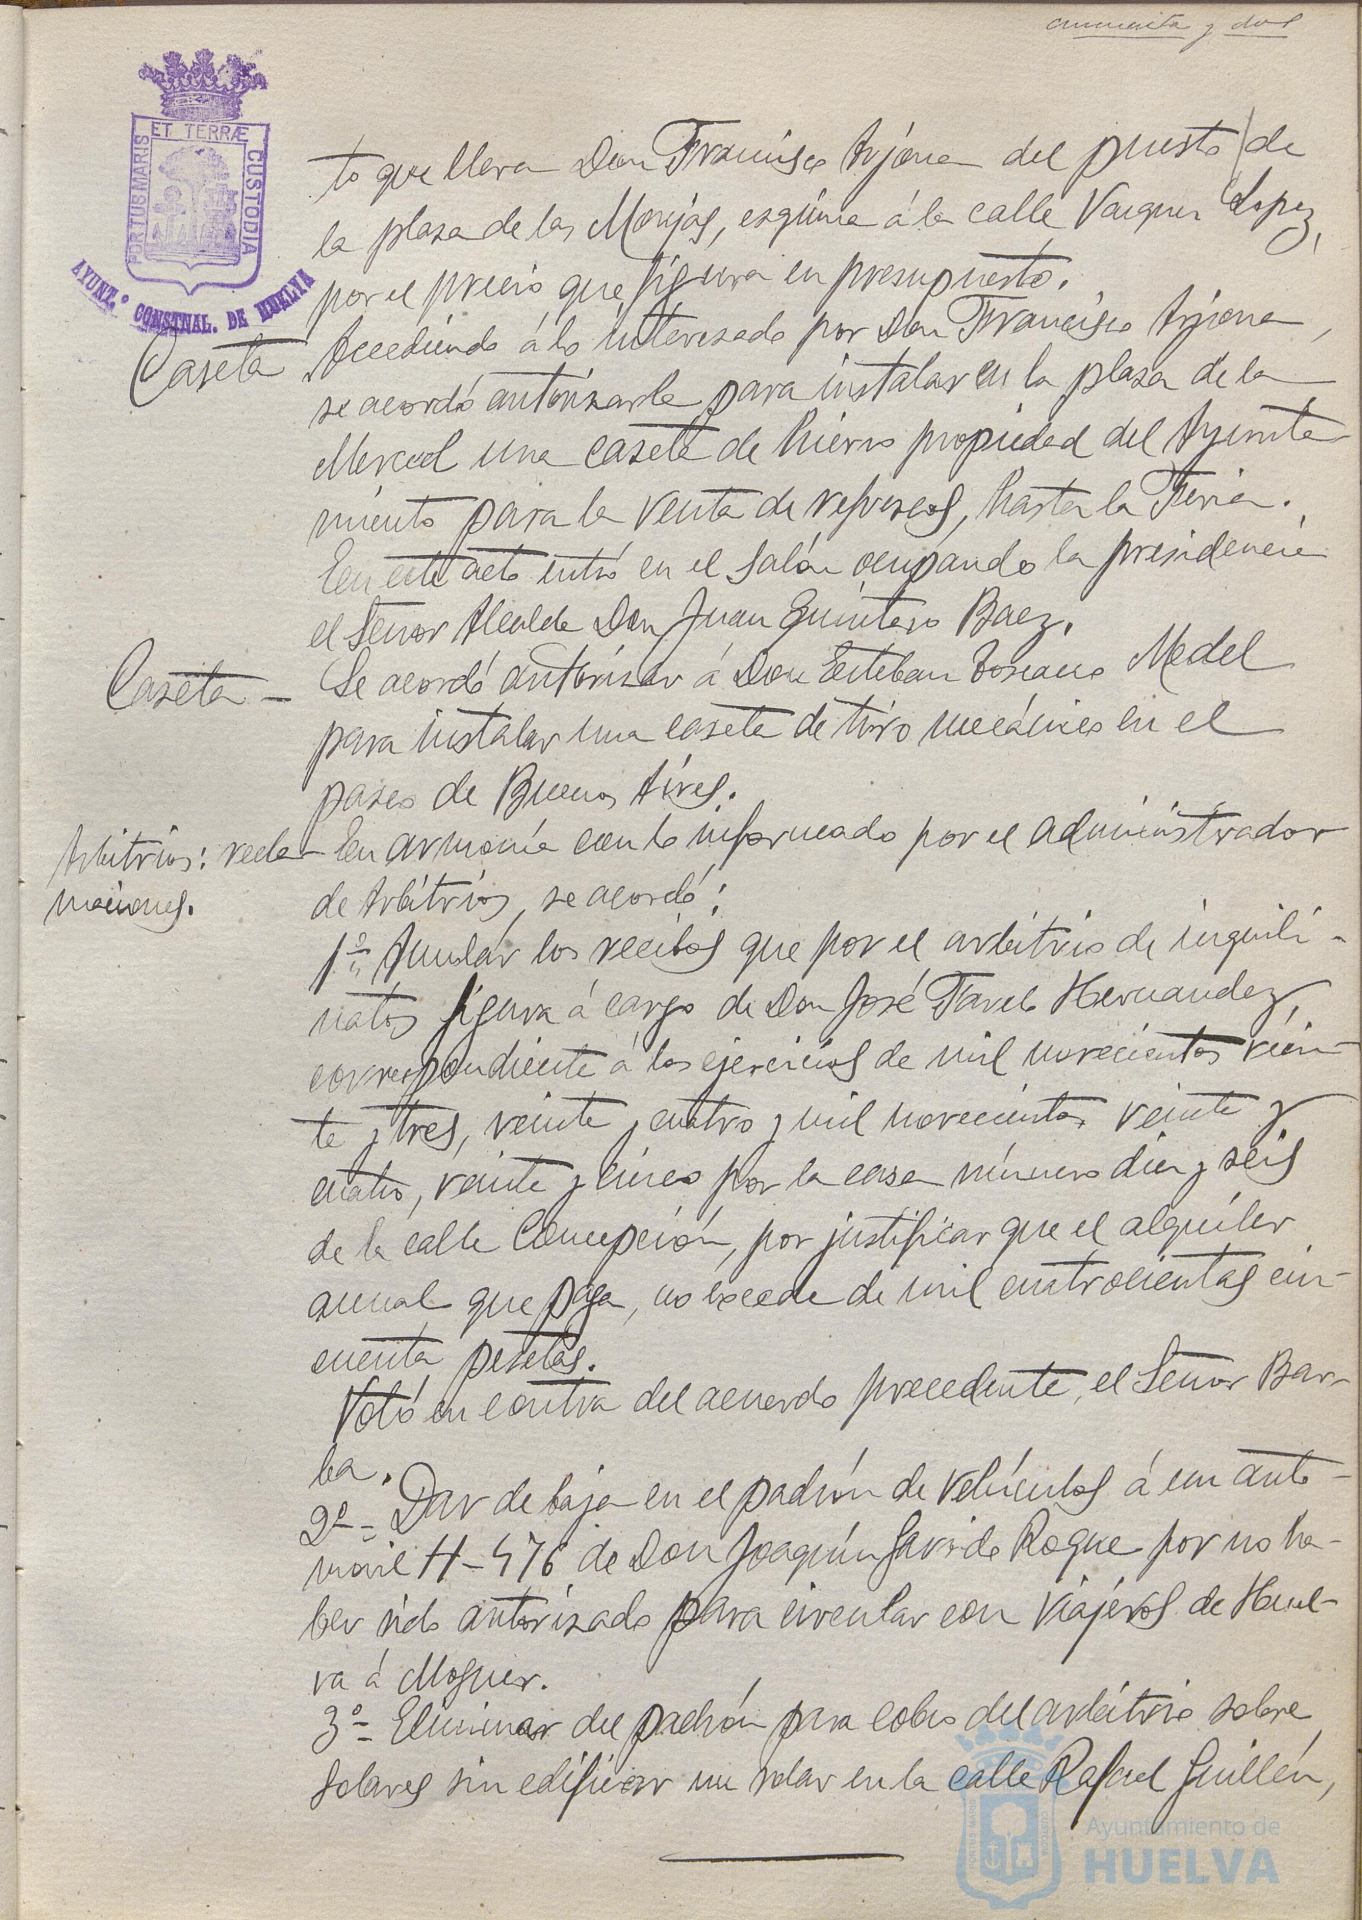 cincuenta y dos
PORTUS MARIS
ET TERRÆ
CUSTODIA
AYUNT.º CONSTNAL. DE HUELVA
to que lleva Don Francisco Arjona del puesto de
la plaza de las Monjas, esquina á la calle Vazquez Lopez,
por el precio que figura en presupuesto.
Caseta Accediendo á lo interesado por Don Francisco Arjona,
se acordó autorizarle para instalar en la plaza de la
Merced una caseta de hierro propiedad del Ayunta-
miento para la venta de refrescos, hasta la Feria.
En este acto entró en el salón ocupando la presidencia
el Señor Alcalde Don Juan Quintero Baez.
Caseta- Se acordó autorizar á Don Esteban Toscano Medel
para instalar una caseta de tiro mecánico en el
paseo de Buenos Aires.
Arbitrios: recla- En armonía con lo informado por el administrador
maciones. de Arbitrios, se acordó:
1º= Anular los recibos que por el arbitrio de inquili-
natos figura á cargo de Don José Hernandez,
correspondiente á los ejercicios de mil novecientos vein-
te y tres, veinte y cuatro y mil novecientos veinte y
cuatro, veinte y cinco por la casa número diez y seis
de la calle Concepción, por justificar que el alquiler
anual que paga, no excede de mil cuatrocientas cin-
cuenta pesetas.
Votó en contra del acuerdo precedente, el Señor Bar-
ba.
2º= Dar de baja en el padrón de vehículos á un auto-
móvil H-476 de Don Joaquín Garrido Roque por no ha-
ber sido autorizado para circular con viajeros de Huel-
va á Moguer.
3º= Eliminar del padrón para cobro del arbitrio sobre
solares sin edificar un solar en la calle Rafael Guillén,
Ayuntamiento de
HUELVA